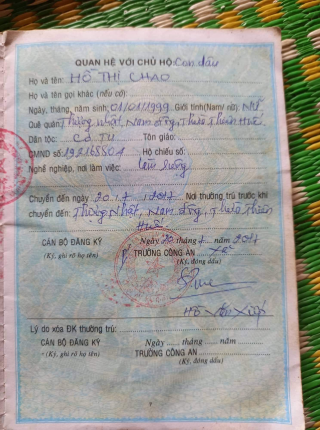 QUAN HỆ VỚI CHỦ HỘ: Con dâu
Họ và tên: HỒ THỊ CHAO
Họ và tên gọi khác (nếu có):
Ngày, tháng, năm sinh: 01/01/1999 Giới tính (Nam/ nữ): Nữ
Quê quán: Thượng Nhật, Nam Đông, Thừa Thiên Huế
Dân tộc: CƠ TU Tôn giáo:
CMND số: Hộ chiếu số:
Nghề nghiệp, nơi làm việc: Làm ruộng
Chuyển đến ngày 20/7/2017 Nơi thường trú trước khi
chuyển đến: Thượng Nhật, Nam Đông, Thừa Thiên
Huế
Ngày 20 tháng 7 năm 2017
CÁN BỘ ĐĂNG KÝ TRƯỞNG CÔNG AN
(Ký, ghi rõ họ tên) (Ký, đóng dấu)
Lý do xóa ĐK thường trú:
Ngày ...... tháng ...... năm ......
CÁN BỘ ĐĂNG KÝ TRƯỞNG CÔNG AN
(Ký, ghi rõ họ tên) (Ký, đóng dấu)